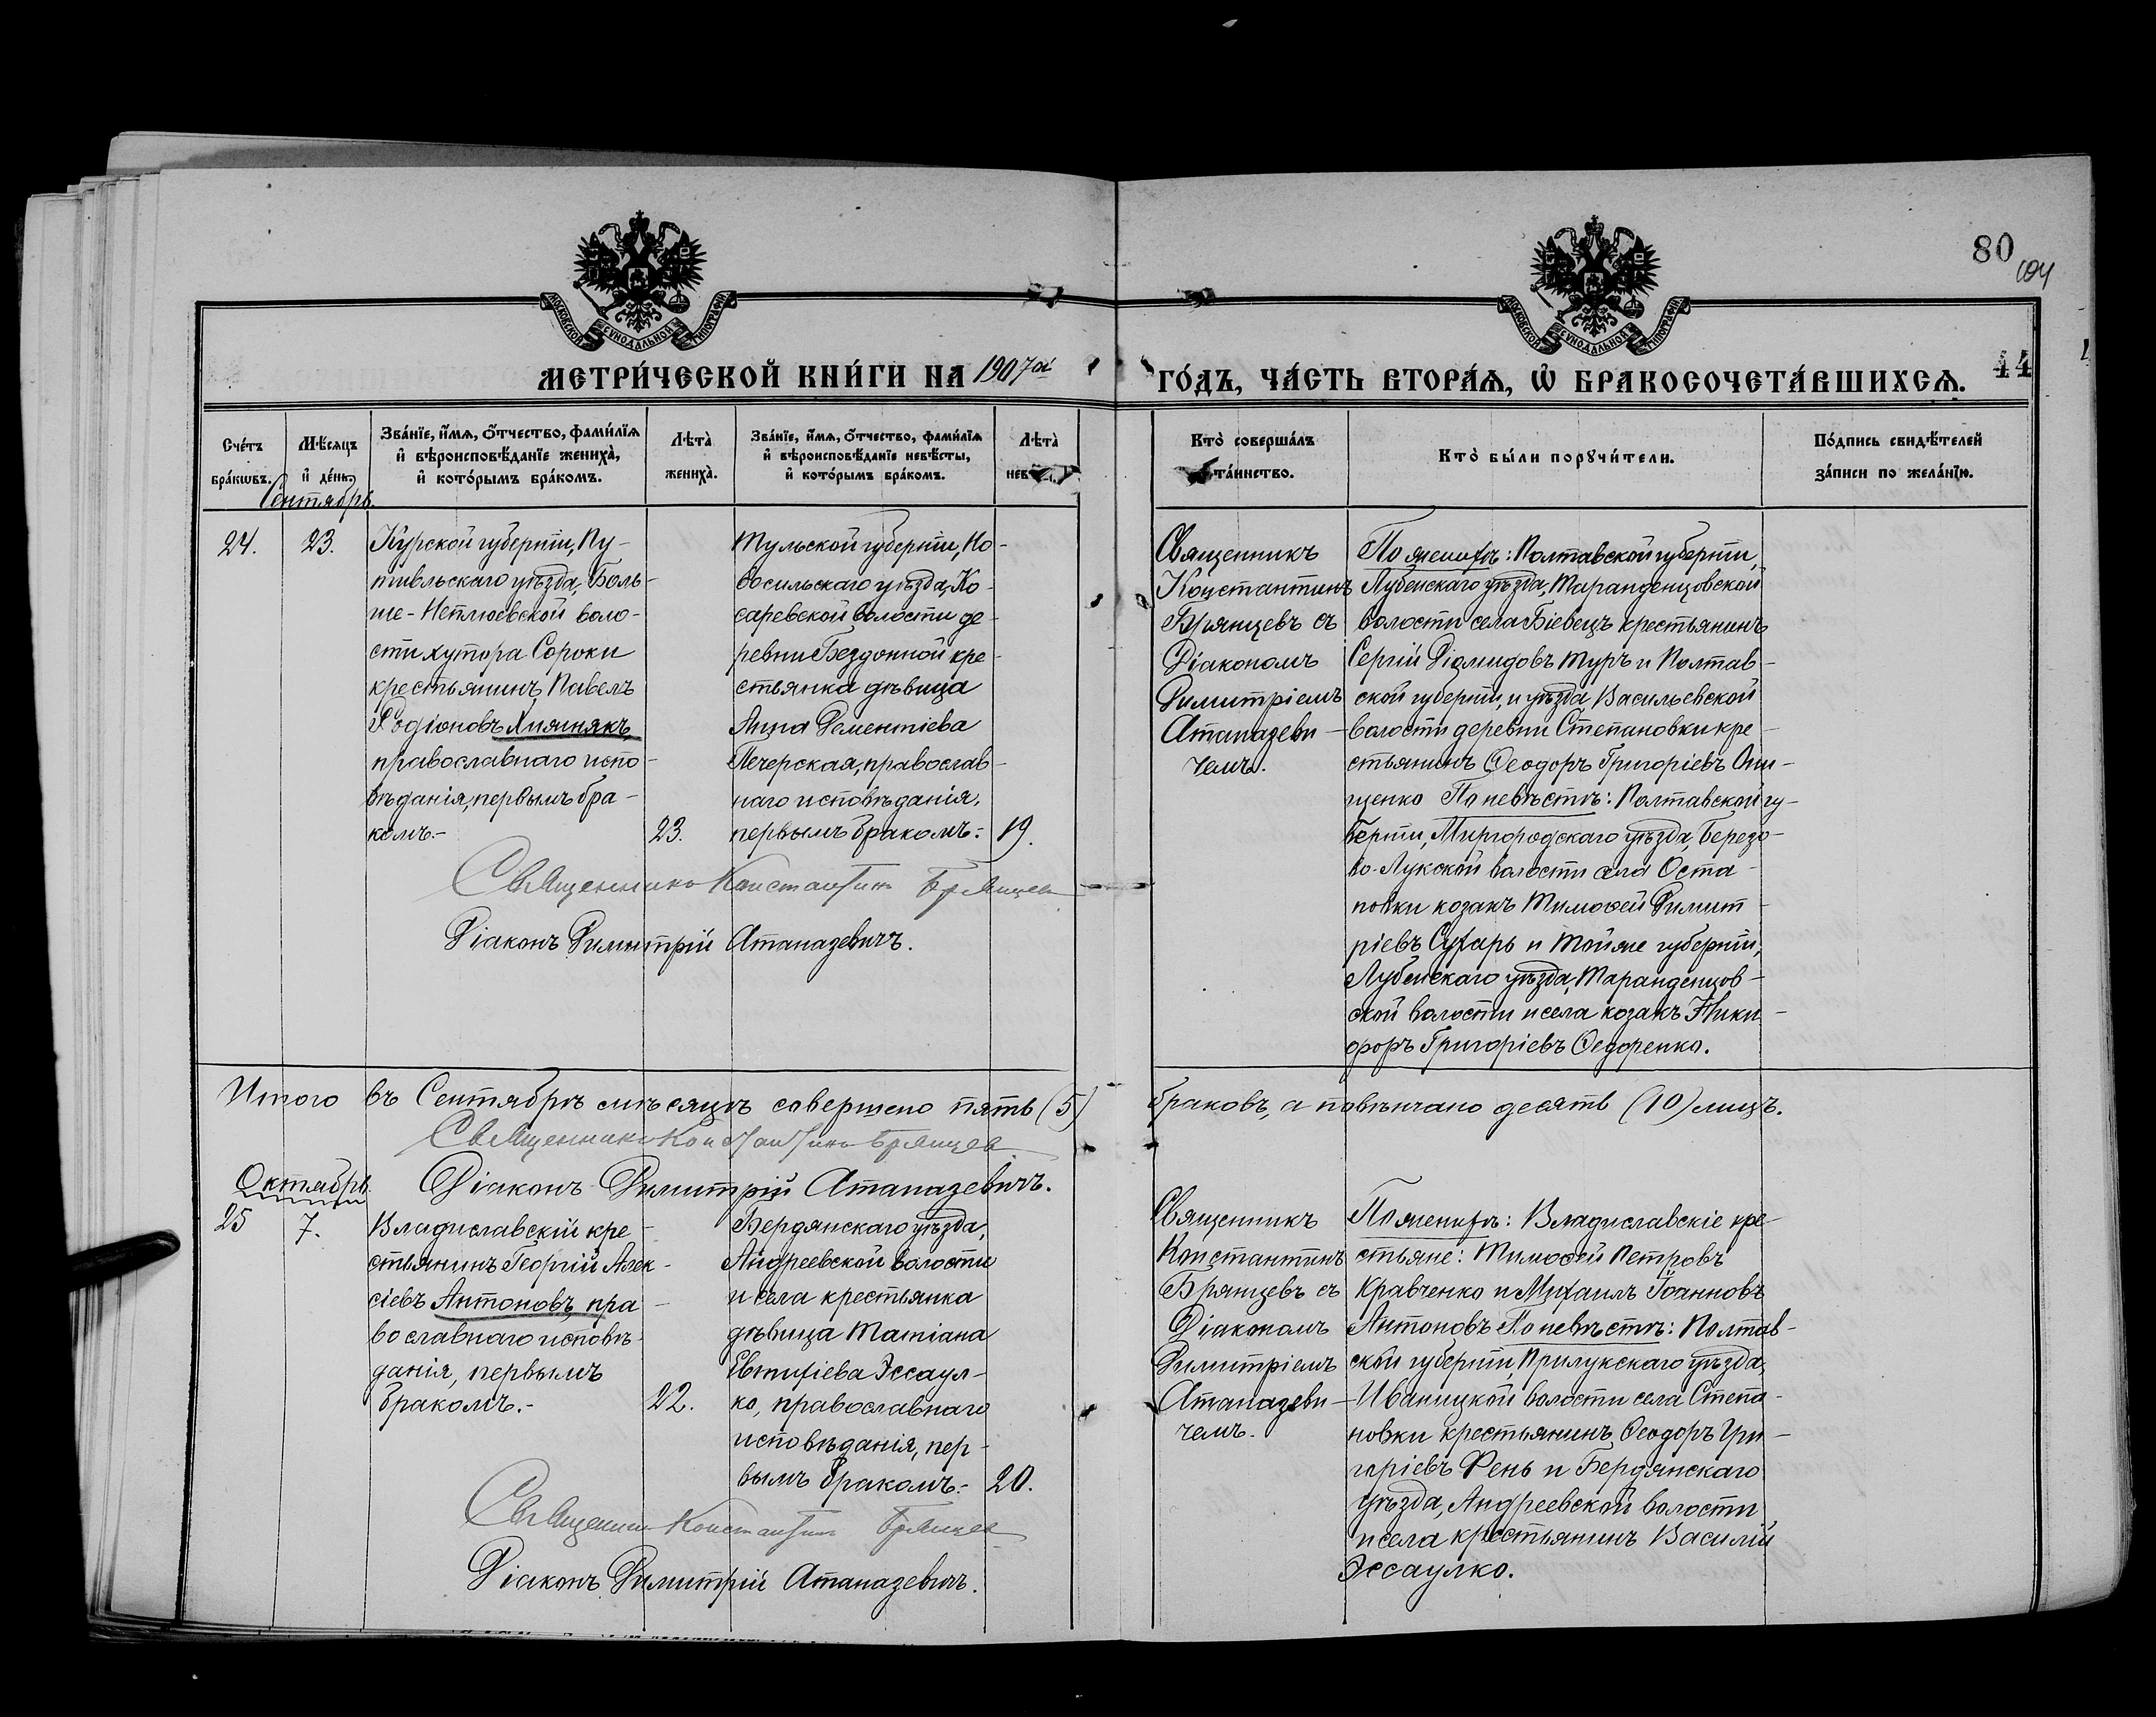 80
104
МОСКОВСКОЙ СУНОДАЛЬНОЙ ТИПОГРАФІИ
МОСКОВСКОЙ СУНОДАЛЬНОЙ ТИПОГРАФІИ
МЕТРИ́ЧЕСКОЙ КНИ́ГИ НА 1907й
ГО́ДЪ, ЧА́СТЬ ВТОРА́Ѧ, Ѡ҆ БРАКОСОЧЕТА́ВШИХСѦ.
44
Сче́тъ бра́кѡвъ.
Мѣ́сѧцъ и҆ де́нь.
Зва́нїе, и҆́мѧ, ѻ҆́тчество, фами́лїѧ и҆ вѣроисповѣ́данїе жениха̀, и҆ кото́рымъ бра́комъ.
Лѣта̀ жениха̀.
Зва́нїе, и҆́мѧ, ѻ҆́тчество, фами́лїѧ и҆ вѣроисповѣ́данїе невѣ́сты, и҆ кото́рымъ бра́комъ.
Лѣта̀
Кто̀ соверша́лъ та́инство.
Кто̀ бы́ли порꙋчи́тели.
По́дпись свидѣ́телей за́писи по жела́нїю.
Сентябрь.
24.
23.
Курской губерніи, Пу-
тивльскаго уѣзда, Боль-
ше-Неплюевской воло-
сти хутора Сороки
крестьянинъ Павелъ
Родіоновъ Хижнякъ,
православнаго испо-
вѣданія, первымъ бра-
комъ.-
23.
Тульской губерніи, Но-
восильскаго уѣзда, Ко-
саревской волости де-
ревни Бездонной кре-
стьянка дѣвица
Анна Дементіева
Печерская, православ-
наго исповѣданія,
первымъ бракомъ.-
19.
Священникъ
Константинъ
Брянцевъ съ
Діакономъ
Димитріемъ
Атаназеви-
чемъ.
По женихѣ: Полтавской губерніи,
Лубенскаго уѣзда, Тарандинцовской
волости села Біевецъ крестьянинъ
Сергій Діомидовъ Туръ и Полтав-
ской губерніи, и уѣзда, Васильевской
волости деревни Степановки кре-
стьянинъ Ѳеодоръ Григоріевъ Они-
щенко По невѣстѣ: Полтавской гу-
берніи, Миргородскаго уѣзда, Березо-
во-Лукской волости села Оста-
повки козакъ Тимоѳей Димит-
ріевъ Сухарь и тойже губерніи,
Лубенскаго уѣзда, Тарандинцов-
ской волости и села козакъ Ники-
форъ Григоріевъ Ѳедоренко.
Священникъ Константинъ Брянцевъ
Діаконъ Димитрій Атаназевичъ.
Итого въ Сентябрѣ мѣсяцѣ совершено пять (5)
браковъ, а повѣнчано десять (10) лицъ.
Священникъ Константинъ Брянцевъ
Діаконъ Димитрій Атаназевичъ.
Октябрь.
25
7.
Владиславскій кре-
стьянинъ Георгій Алек-
сіевъ Антоновъ, пра-
вославнаго исповѣ-
данія, первымъ
бракомъ.-
22.
Бердянскаго уѣзда,
Андреевской волости
и села крестьянка
дѣвица Татіана
Евтихіева Эссаул-
ко, православнаго
исповѣданія, пер-
вымъ бракомъ.-
20.
Священникъ
Константинъ
Брянцевъ съ
Діакономъ
Димитріемъ
Атаназеви-
чемъ.
По женихѣ: Владиславскіе кре-
стьяне: Тимоѳей Петровъ
Кравченко и Михаилъ Іоанновъ
Антоновъ По невѣстѣ: Полтав-
ской губерніи, Прилукскаго уѣзда,
Иваницкой волости села Степа-
новки крестьянинъ Ѳеодоръ Гри-
горіевъ Фень и Бердянскаго
уѣзда, Андреевской волости
и села, крестьянинъ Василій
Эссаулко.
Священникъ Константинъ Брянцевъ
Діаконъ Димитрій Атаназевичъ.